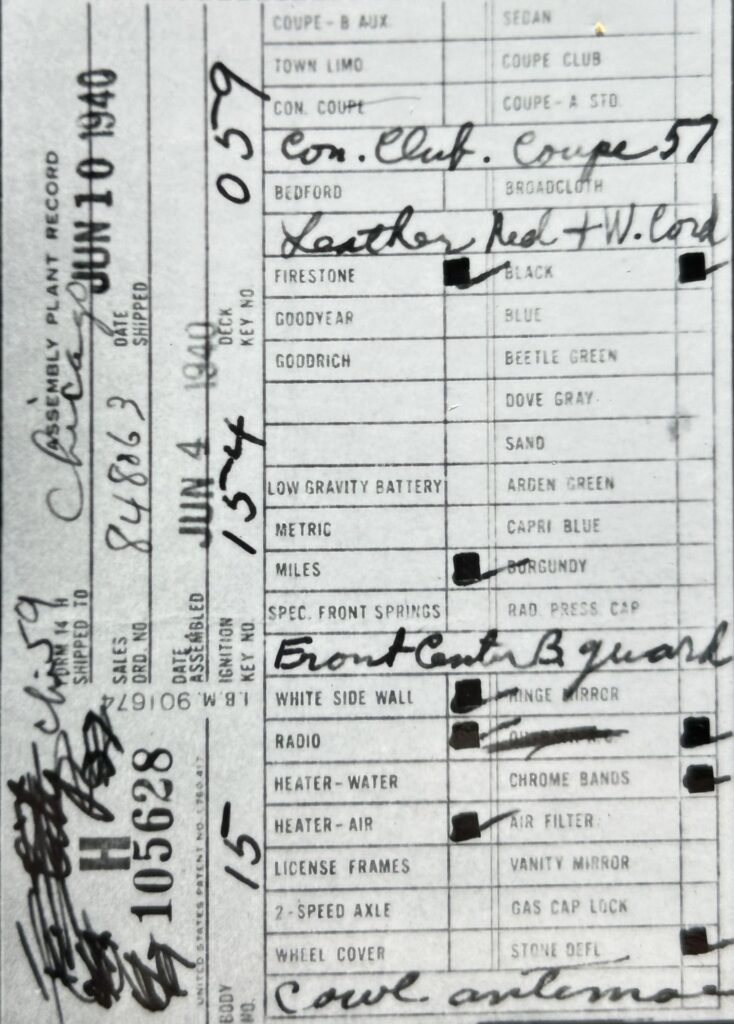 ASSEMBLY PLANT RECORD
FORM 14 H
SHIPPED TO
Chicago
Chi 59
SALES
ORD. NO
848063
DATE
SHIPPED
JUN 10 1940
DATE
ASSEMBLED
JUN 4 1940
IGNITION
KEY NO.
154
DECK
KEY NO.
059
I.B.M. 901674
H
105628
UNITED STATES PATENT NO. 1,780,417
BODY
NO.
15
COUPE - B AUX SEDAN
TOWN LIMO COUPE CLUB
CON. COUPE COUPE - A STD.
Con. Club. Coupe 57
BEDFORD BROADCLOTH
Leather Red + W. Cord
FIRESTONE BLACK
GOODYEAR BLUE
GOODRICH BEETLE GREEN
DOVE GRAY
SAND
LOW GRAVITY BATTERY ARDEN GREEN
METRIC CAPRI BLUE
MILES BURGUNDY
SPEC. FRONT SPRINGS RAD. PRESS CAP
Front Center B. guard
WHITE SIDE WALL HINGE MIRROR
RADIO
HEATER - WATER CHROME BANDS
HEATER - AIR AIR FILTER
LICENSE FRAMES VANITY MIRROR
2 - SPEED AXLE GAS CAP LOCK
WHEEL COVER STONE DEFL.
Cowl antennae